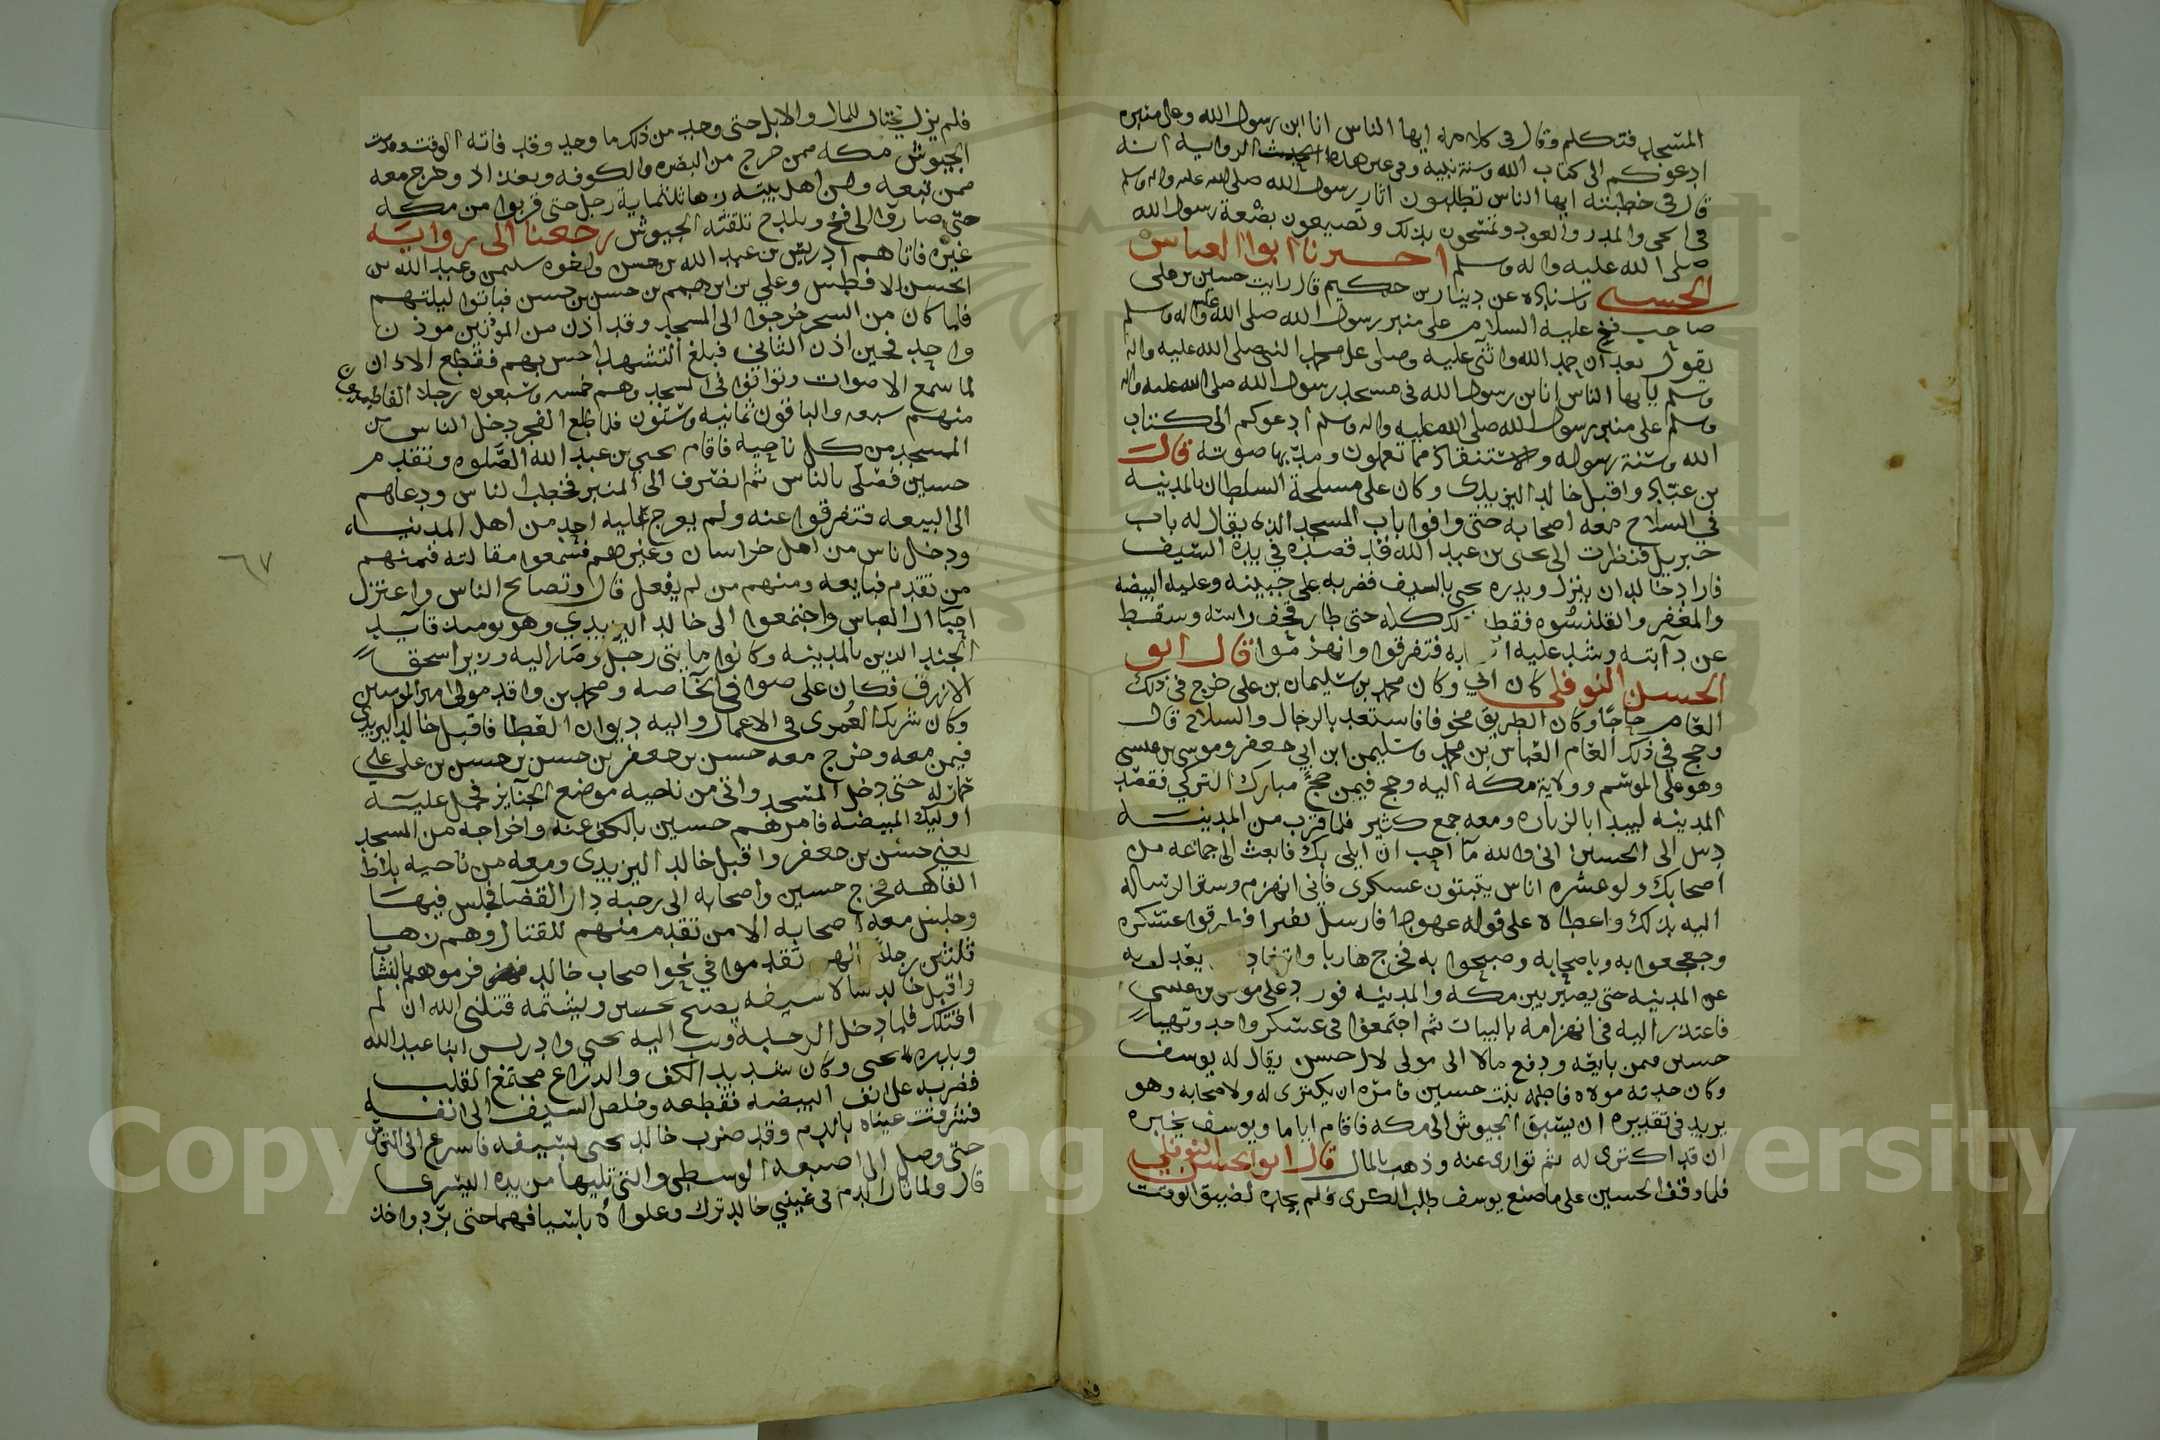 المسجد فتكلم وقال في كلامه ايها الناس انا ابن رسول الله وعلى منبره
ادعوكم الى كتاب الله وسنة نبيه وفي غير هذه الرواية انه
قال في خطبته ايها الناس تطلبون اثار رسول الله صلى الله عليه واله وسلم
في الحجر والمدر والعود وتمسحون بذلك وتضيعون بضعة رسول الله
صلى الله عليه واله وسلم اخبرنا ابوا العباس
الحسني باسناده عن دينار بن حكيم قال رايت حسين بن علي
صاحب فخ عليه السلام على منبر رسول الله صلى الله عليه واله وسلم
يقول بعد ان حمد الله واثنى عليه وصلى على محمد النبي صلى الله عليه واله
وسلم يا ايها الناس انا بن رسول الله في مسجد رسول الله صلى الله عليه واله
وسلم على منبر رسول الله صلى الله عليه واله وسلم ادعوكم الى كتاب
الله وسنة رسوله والاستنقاذ مما تعملون ومد بها صوته قال
بن عباد واقبل خالد اليزيدي وكان على مسلحة السلطان بالمدينه
في السلاح معه اصحابه حتى وافوا باب المسجد الذي يقال له باب
جبريل فنظرت الى يحيى بن عبد الله قد قصده في يده السيف
فاراد خالد ان ينزل وبدره يحيى بالسيف فضربه على جبينه وعليه البيضه
والمغفر والقلنسوه فقطع ذلك كله حتى طار قحف راسه وسقط
عن دآبته وشد عليه ا به فتفرقوا وانهزموا قال ابو
الحسن النوفلي كان ابي وكان محمد بن سليمان بن علي خرج في ذلك
العام حاجا وكان الطريق مخوفا فاستعد بالرجال والسلاح قال
وحج في ذلك العام العباس بن محمد وسليمن ابن ابي جعفر وموسى بن عيسى
وهو على الموسم وولاية مكه اليه وحج فيمن حج مبارك التركي فقصد
المدينه ليبدا بالزياره ومعه جمع كثير فلما قرب من المدينه
دس الى الحسين اني والله ما احب ان ابلى بك فابعث الي جماعه من
اصحابك ولو عشره اناس يبيتون عسكري فاني انهزم وستر الرساله
اليه بذلك واعطاه على قوله عهوجا فارسل نفرا فطرقوا عسكره
وجعجعوا به وباصحابه وصيحوا به فخرج هاربا يعدل به
عن المدينه حتى يصير بين مكه والمدينه فورد على موسى بن عيسى
فاعتذر اليه في انهزامه بالبيات ثم اجتمعوا في عسكر واحد وتهيا
حسين فيمن بايعه ودفع مالا الى مولى لال حسن يقال له يوسف
وكان جدته مولاه فاطمه بنت حسين فامره ان يكتري له ولاصحابه وهو
يريد في تقديره ان يسبق الجيوش الى مكه فاقام اياما ويوسف يخبره
ان قد اكترى له ثم توارى عنه وذهب بالمال قال ابو الحسن النوفلي
فلما وقف الحسين على ما صنع يوسف طلب الكرى فلم يجده لضيق الوقت
فلم يزل يحتال للمال والابل حتى وجد من ذلك ما وجد وقد فاته الوقت وقدمت
الجيوش مكه فمن خرج من البصره والكوفه وبغداد وخرج معه
ممن تبعه ومن اهل بيته زها ثلثماية رجل حتى قربوا من مكه
حتى صاروا الى فخ وبلدح تلقته الجيوش رجعنا الى رواية
غيره فاتاهم ادريس بن عبد الله بن حسن واخوه سليمن وعبد الله بن
الحسن الافطس وعلي بن ابرهيم بن حسن بن حسن فباتوا ليلتهم
فلما كان من السحر خرجوا الى المسجد وقد اذن من المؤذنين موذن
واحد فحين اذن الثاني فبلغ التشهد احس بهم فقطع الاذان
لما سمع الاصوات وتواثبوا في المسجد وهم خمسه وسبعون رجلا الفاطميون
منهم سبعه والباقون ثمانيه وستون فلما طلع الفجر دخل الناس من
المسجد من كل ناحيه فاقام يحيى بن عبد الله الصلوه وتقدم
حسين فصلى بالناس ثم انصرف الى المنبر فخطب الناس ودعاهم
الى البيعه فتفرقوا عنه ولم يعرج عليه احد من اهل المدينه
ودخل ناس من اهل خراسان وغيرهم فسمعوا مقالته فمنهم
من تقدم فبايعه ومنهم من لم يفعل قال وتصايح الناس واعتزل
احبا ال العباس واجتمعوا الى خالد اليزيدي وهو يوميذ قايد
الجند الذين بالمدينه وكانوا مايتي رجل وصار اليه وزير اسحق
الازرق فكان على صوافي الخاصه ومحمد بن واقد مولى امير المومنين
وكان شريك العمري في الاعمال واليه ديوان العطا فاقبل خالد اليزيدي
فيمن معه وخرج معه حسن بن جعفر بن حسن بن حسن بن علي على
حمار له حتى دخل المسجد واتى من ناحيه موضع الجنايز فحمل عليه
اوليك المبيضه فامرهم حسين بالكف عنه واخراجه من المسجد
يعني حسن بن جعفر واقبل خالد اليزيدي ومعه من ناحيه بلاط
الفاكهه فخرج حسين واصحابه الى رحبة دار القضا فجلس فيها
وجلس معه اصحابه الا من تقدم منهم للقتال وهم زها
ثلثين رجلا تقدموا في نحو اصحاب خالد فرموهم بالنشاب
واقبل خالد سالا سيفه يصيح بحسين ويشتمه قتلني الله ان لم
اقتلك فلما دخل الرحبه وثب اليه يحيى وادريس ابنا عبد الله
وبدره يحيى وكان شديد الكف والذراع مجتمع القلب
فضربه على انف البيضه فقطعه وخلص السيف الى انفه
فشرقت عيناه بالدم وقد ضرب خالد يحيى بسيفه فاسرع في الترس
حتى وصل الى اصبعه الوسطى والتي تليها من يده اليسرى
قال ولما ثار الدم في عيني خالد ترك وعلواه باسيافهما حتى برد واخذ
٦٧
Copyright © King Saud University